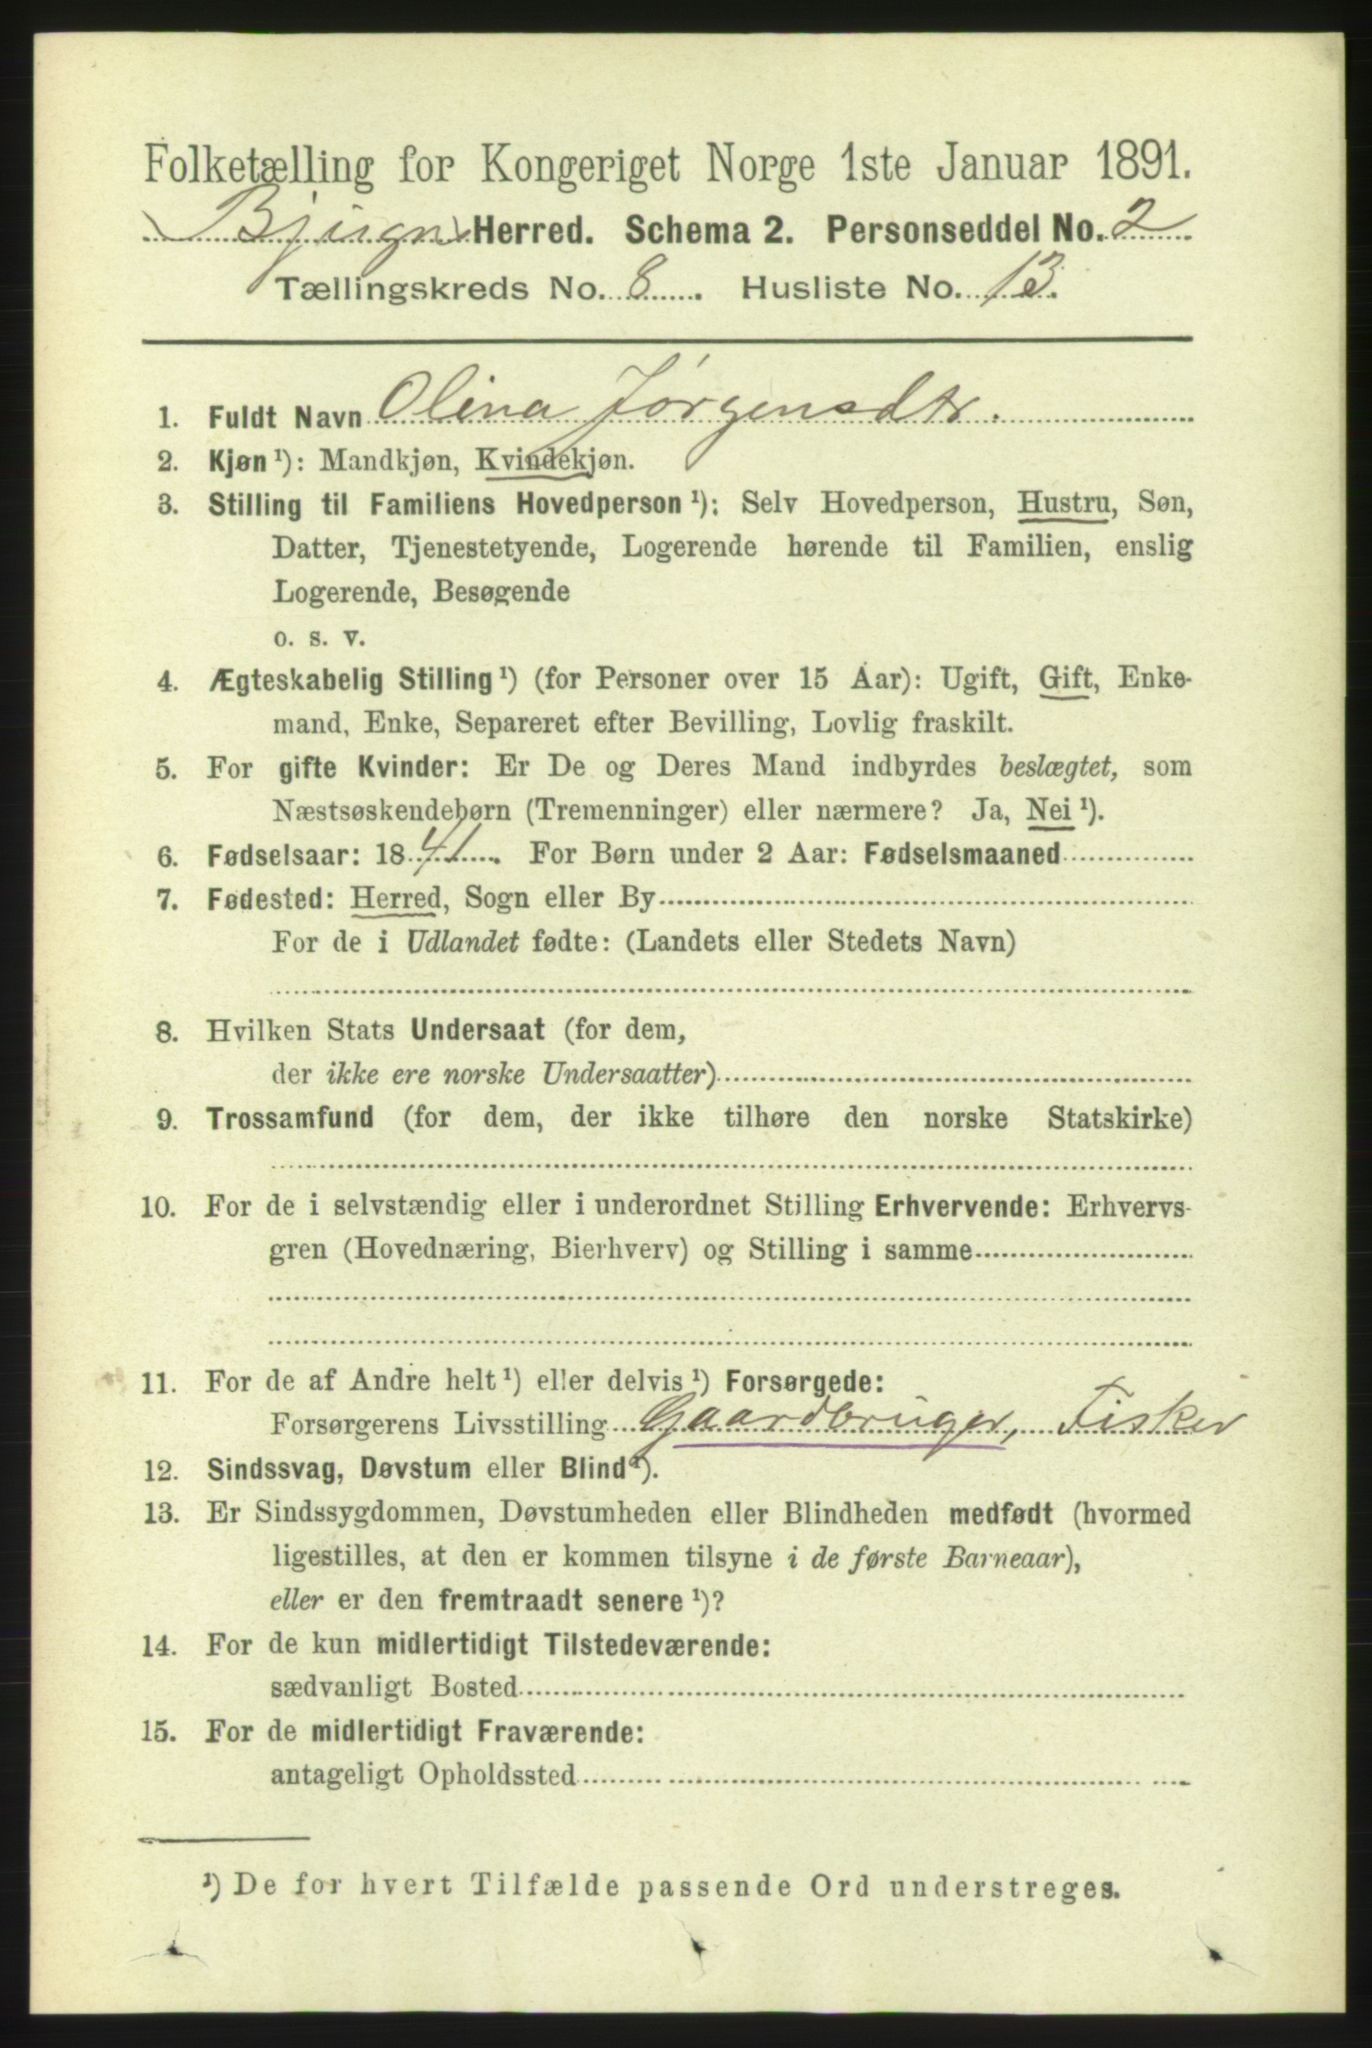 Folketælling for Kongeriget Norge 1ste Januar 1891.
Bjugn Herred. Schema 2. Personseddel No. 2
Tællingskreds No. 8. Husliste No. 13.
1. Fuldt Navn Olina Jørgensdtr.
2. Kjøn ¹): Mandkjøn, Kvindekjøn.
3. Stilling til Familiens Hovedperson ¹): Selv Hovedperson, Hustru, Søn,
Datter, Tjenestetyende, Logerende hørende til Familien, enslig
Logerende, Besøgende
o. s. v.
4. Ægteskabelig Stilling ¹) (for Personer over 15 Aar): Ugift, Gift, Enke-
mand, Enke, Separeret efter Bevilling, Lovlig fraskilt.
5. For gifte Kvinder: Er De og Deres Mand indbyrdes beslægtet, som
Næstsøskendebørn (Tremenninger) eller nærmere? Ja, Nei ¹).
6. Fødselsaar: 1841. For Børn under 2 Aar: Fødselsmaaned
7. Fødested: Herred, Sogn eller By
For de i Udlandet fødte: (Landets eller Stedets Navn)
8. Hvilken Stats Undersaat (for dem,
der ikke ere norske Undersaatter)
9. Trossamfund (for dem, der ikke tilhøre den norske Statskirke)
10. For de i selvstændig eller i underordnet Stilling Erhvervende: Erhvervs-
gren (Hovednæring, Bierhverv) og Stilling i samme
11. For de af Andre helt ¹) eller delvis ¹) Forsørgede:
Forsørgerens Livsstilling Gaardbruger, Fisker
12. Sindssvag, Døvstum eller Blind ¹).
13. Er Sindssygdommen, Døvstumheden eller Blindheden medfødt (hvormed
ligestilles, at den er kommen tilsyne i de første Barneaar),
eller er den fremtraadt senere ¹)?
14. For de kun midlertidigt Tilstedeværende:
sædvanligt Bosted
15. For de midlertidigt Fraværende:
antageligt Opholdssted
¹) De for hvert Tilfælde passende Ord understreges.